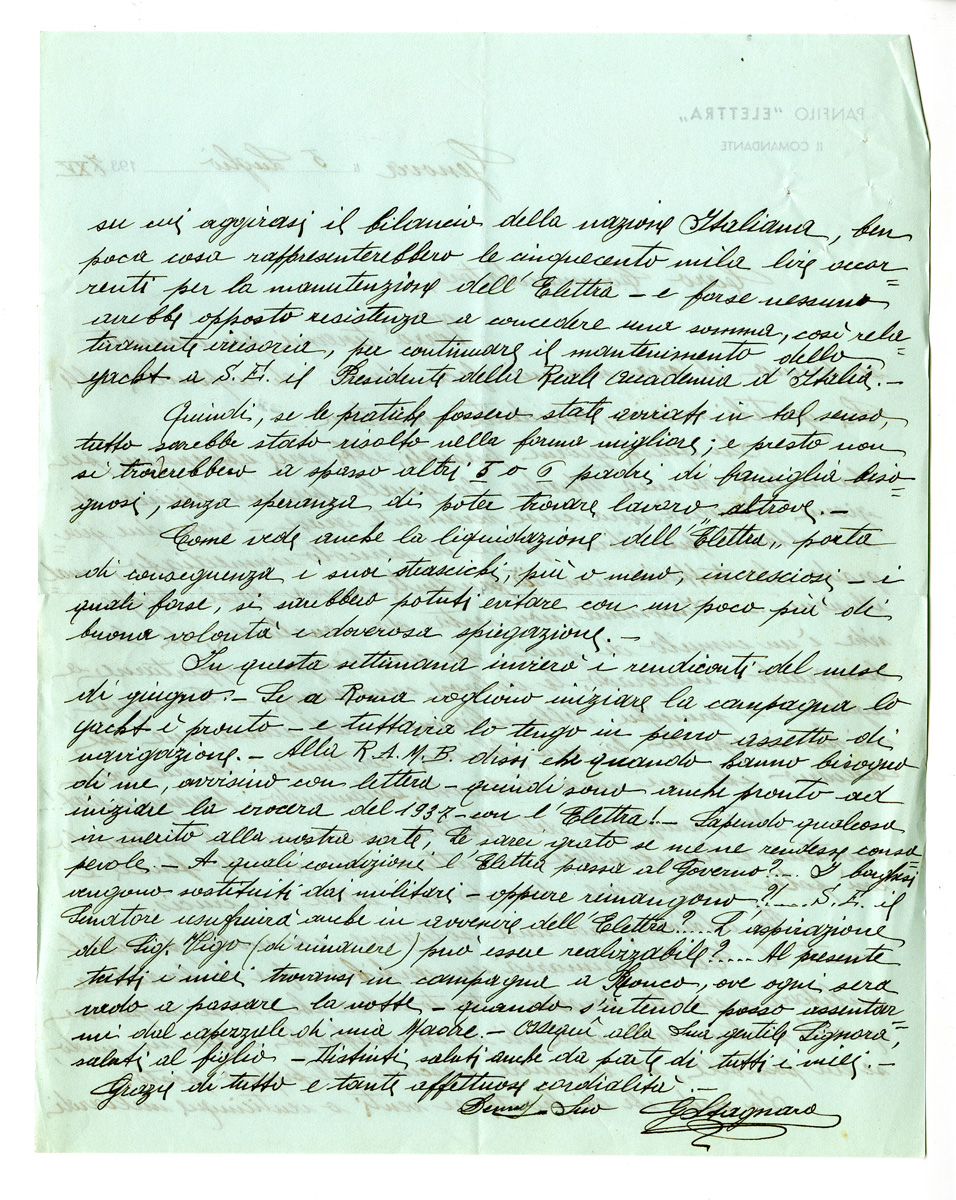 PANFILO "ELETTRA„
IL COMANDANTE
Genova li 5 Luglio 1937 XV
su cui aggirasi il bilancio della nazione Italiana, ben
poca cosa rappresenterebbero le cinquecento mila lire occor=
renti per la manutenzione dell'Elettra – e forse nessuno
avrebbe opposto resistenza a concedere una somma, così rela=
tivamente irrisoria, per continuare il mantenimento dello
yacht a S.E. il Presidente della Reale Accademia d'Italia. –
Quindi, se le pratiche fossero state avviate in tal senso,
tutto sarebbe stato risolto nella forma migliore; e presto non
si troverebbero a spasso altri 5 o 6 padri di famiglia biso=
gnosi, senza speranza di poter trovare lavoro altrove. –
Come vede anche la liquidazione dell'"Elettra„ porta
di conseguenza i suoi strascichi, più o meno, incresciosi – i
quali forse, si sarebbero potuti evitare con un poco più di
buona volontà e doverosa spiegazione. –
In questa settimana invierò i rendiconti del mese
di giugno. – Se a Roma vogliono iniziare la campagna lo
yacht è pronto – e tuttavia lo tengo in pieno assetto di
navigazione. – Alla R.A.M.B. dissi che quando hanno bisogno
di me, avvisino con lettera – quindi sono anche pronto ad
iniziare la crocera del 1937 – con l'Elettra! – Sapendo qualcosa
in merito alla nostra sorte, Le sarei grato se me ne rendesse consa
pevole. – A quali condizione l'Elettra passa al Governo? – I borghesi
vengono sostituiti dai militari – oppure rimangono?!.... S.E. il
Senatore usufruirà anche in avvenire dell'Elettra?.... L'aspirazione
del Sig. Vigo (di rimanere) può essere realizzabile?.... Al presente
tutti i miei trovansi in campagna a Ronco, ove ogni sera
vado a passare la notte – quando s'intende posso assentar=
mi dal capezzale di mia Madre. – Ossequi alla Sua gentile Signora,
saluti al figlio – Distinti saluti anche da parte di tutti i miei. –
Grazie di tutto e tante affettuose cordialità. –
Suo GStagnaro